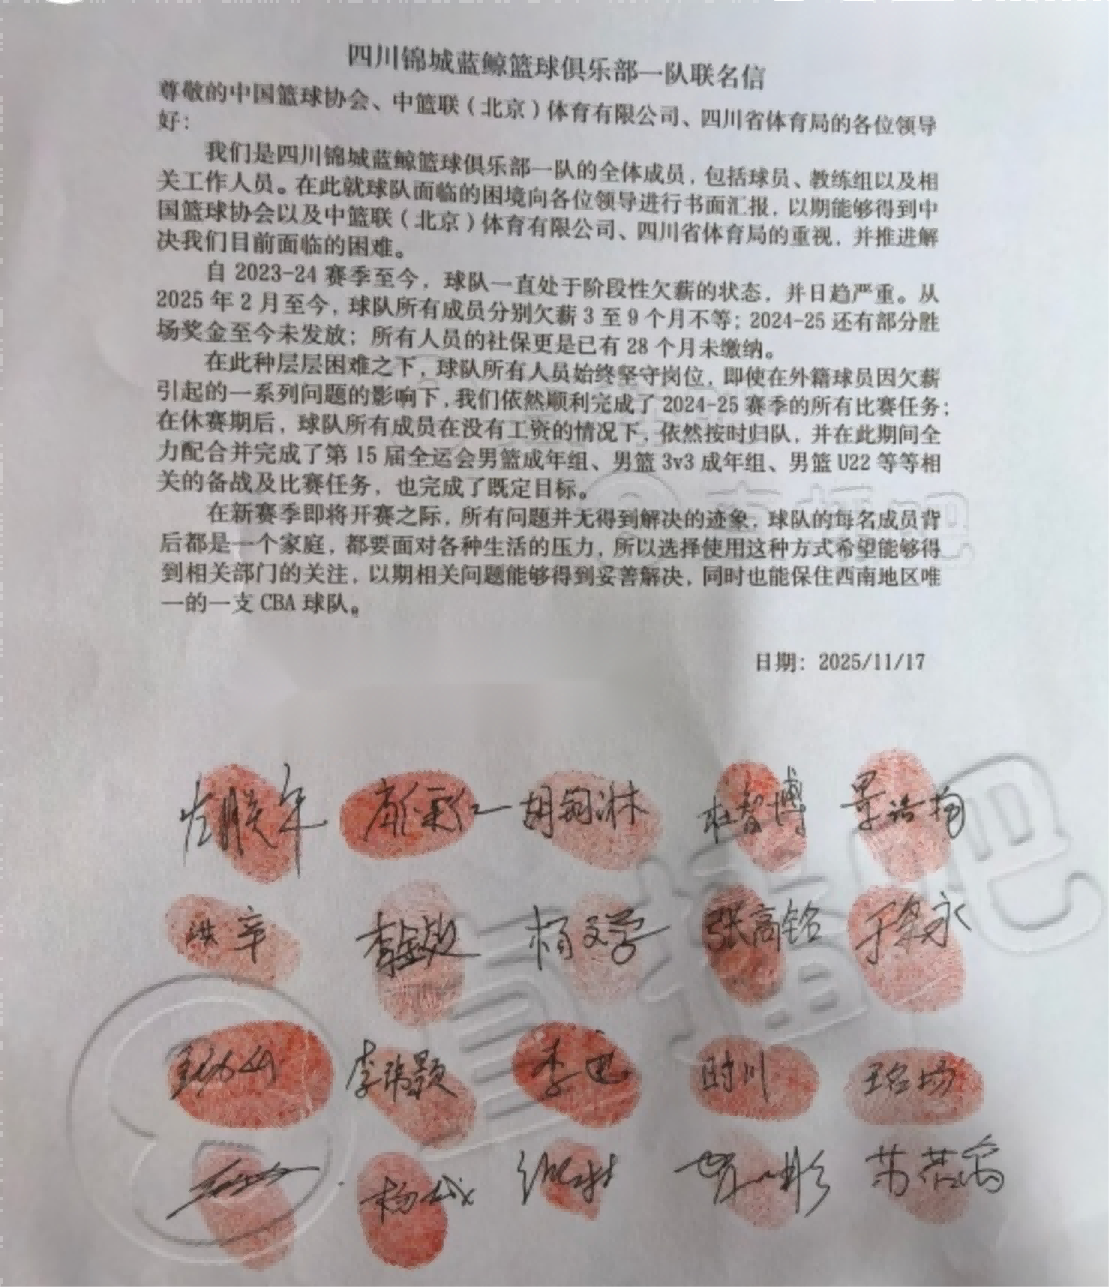 四川锦城蓝鲸篮球俱乐部一队联名信
尊敬的中国篮球协会、中篮联（北京）体育有限公司、四川省体育局的各位领导
好：
我们是四川锦城蓝鲸篮球俱乐部一队的全体成员，包括球员、教练组以及相
关工作人员。在此就球队面临的困境向各位领导进行书面汇报，以期能够得到中
国篮球协会以及中篮联（北京）体育有限公司、四川省体育局的重视，并推进解
决我们目前面临的困难。
自 2023-24 赛季至今，球队一直处于阶段性欠薪的状态，并日趋严重。从
2025 年 2 月至今，球队所有成员分别欠薪 3 至 9 个月不等；2024-25 还有部分胜
场奖金至今未发放；所有人员的社保更是已有 28 个月未缴纳。
在此种层层困难之下，球队所有人员始终坚守岗位，即使在外籍球员因欠薪
引起的一系列问题的影响下，我们依然顺利完成了 2024-25 赛季的所有比赛任务；
在休赛期后，球队所有成员在没有工资的情况下，依然按时归队，并在此期间全
力配合并完成了第 15 届全运会男篮成年组、男篮 3v3 成年组、男篮 U22 等等相
关的备战及比赛任务，也完成了既定目标。
在新赛季即将开赛之际，所有问题并无得到解决的迹象，球队的每名成员背
后都是一个家庭，都要面对各种生活的压力，所以选择使用这种方式希望能够得
到相关部门的关注，以期相关问题能够得到妥善解决，同时也能保住西南地区唯
一的一支 CBA 球队。
日期：2025/11/17
杜智博
洪辛 杨文学 张高铭
时川
直播吧